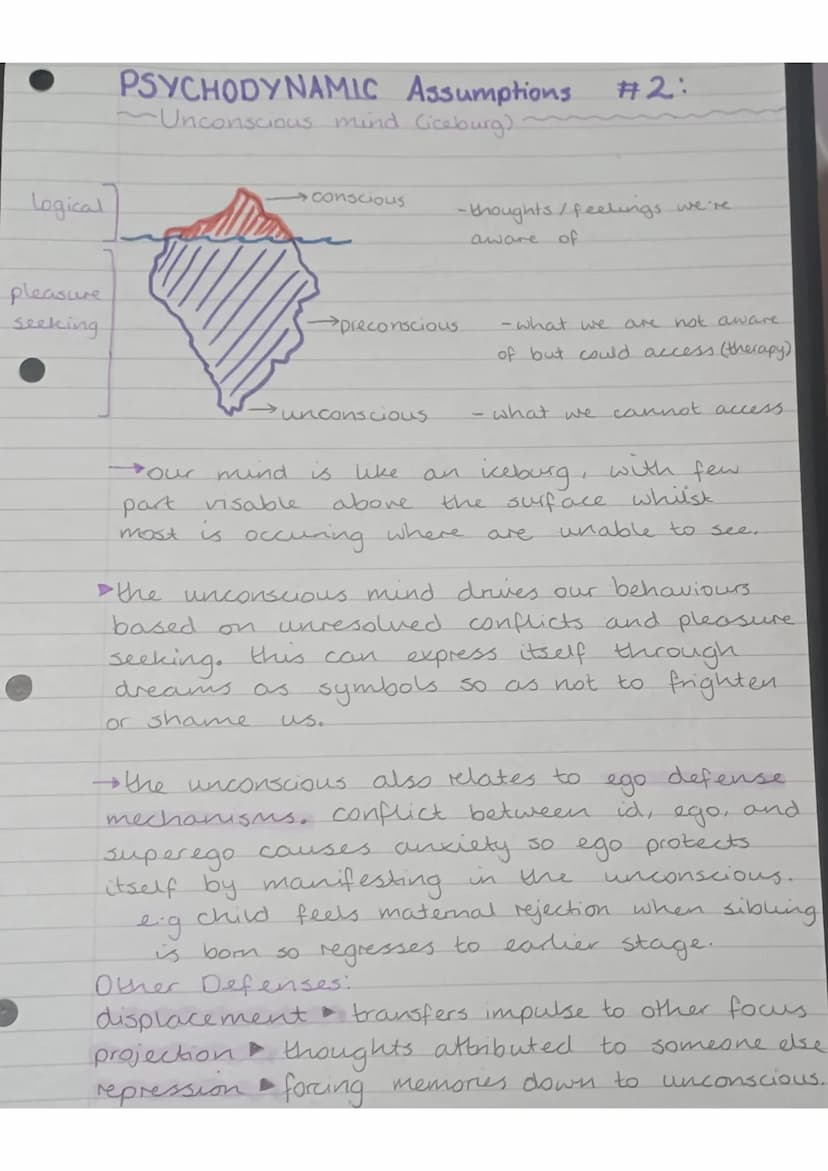 PSYCHODYNAMIC Assumptions #2:
Unconscious mind (iceburg)
logical
→conscious
-thoughts/feelings we're
aware of
pleasure
seeking
→preconscious
-what we are not aware
of but could access (therapy)
→unconscious
-what we cannot access
→our mind is like an iceburg, with few
part visable above the surface whilsk
most is occuring where are unable to see.
▶the unconscious mind drives our behaviours
based on unresolved conflicts and pleasure
seeking. this can express itself through
dreams as symbols so as not to frighten
or shame us.
→the unconscious also relates to ego defense
mechanisms. conflict between id, ego, and
superego causes anxiety so ego protects
itself by manifesting in the unconscious.
e.g child feels maternal rejection when sibling
is born so regresses to earlier stage.
Other Defenses:
displacement ▶ transfers impulse to other focus
projection ▶ thoughts attributed to someone else
repression ▶ forcing memories down to unconscious.